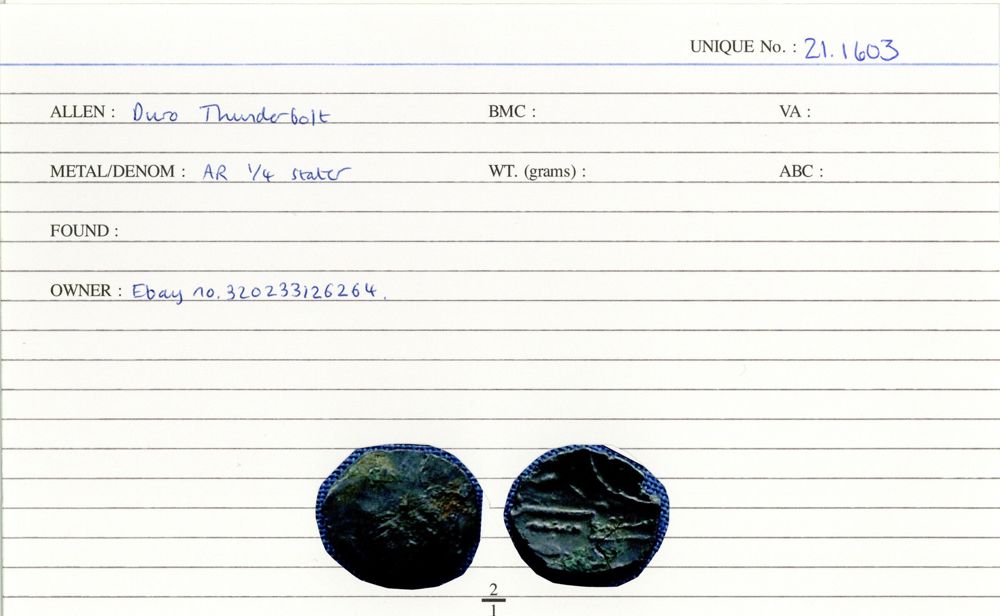 UNIQUE No. : 21.1603
ALLEN : Duro Thunderbolt BMC : VA :
METAL/DENOM : AR 1/4 stater WT. (grams) : ABC :
FOUND :
OWNER : Ebay no. 320233126264.
2
1